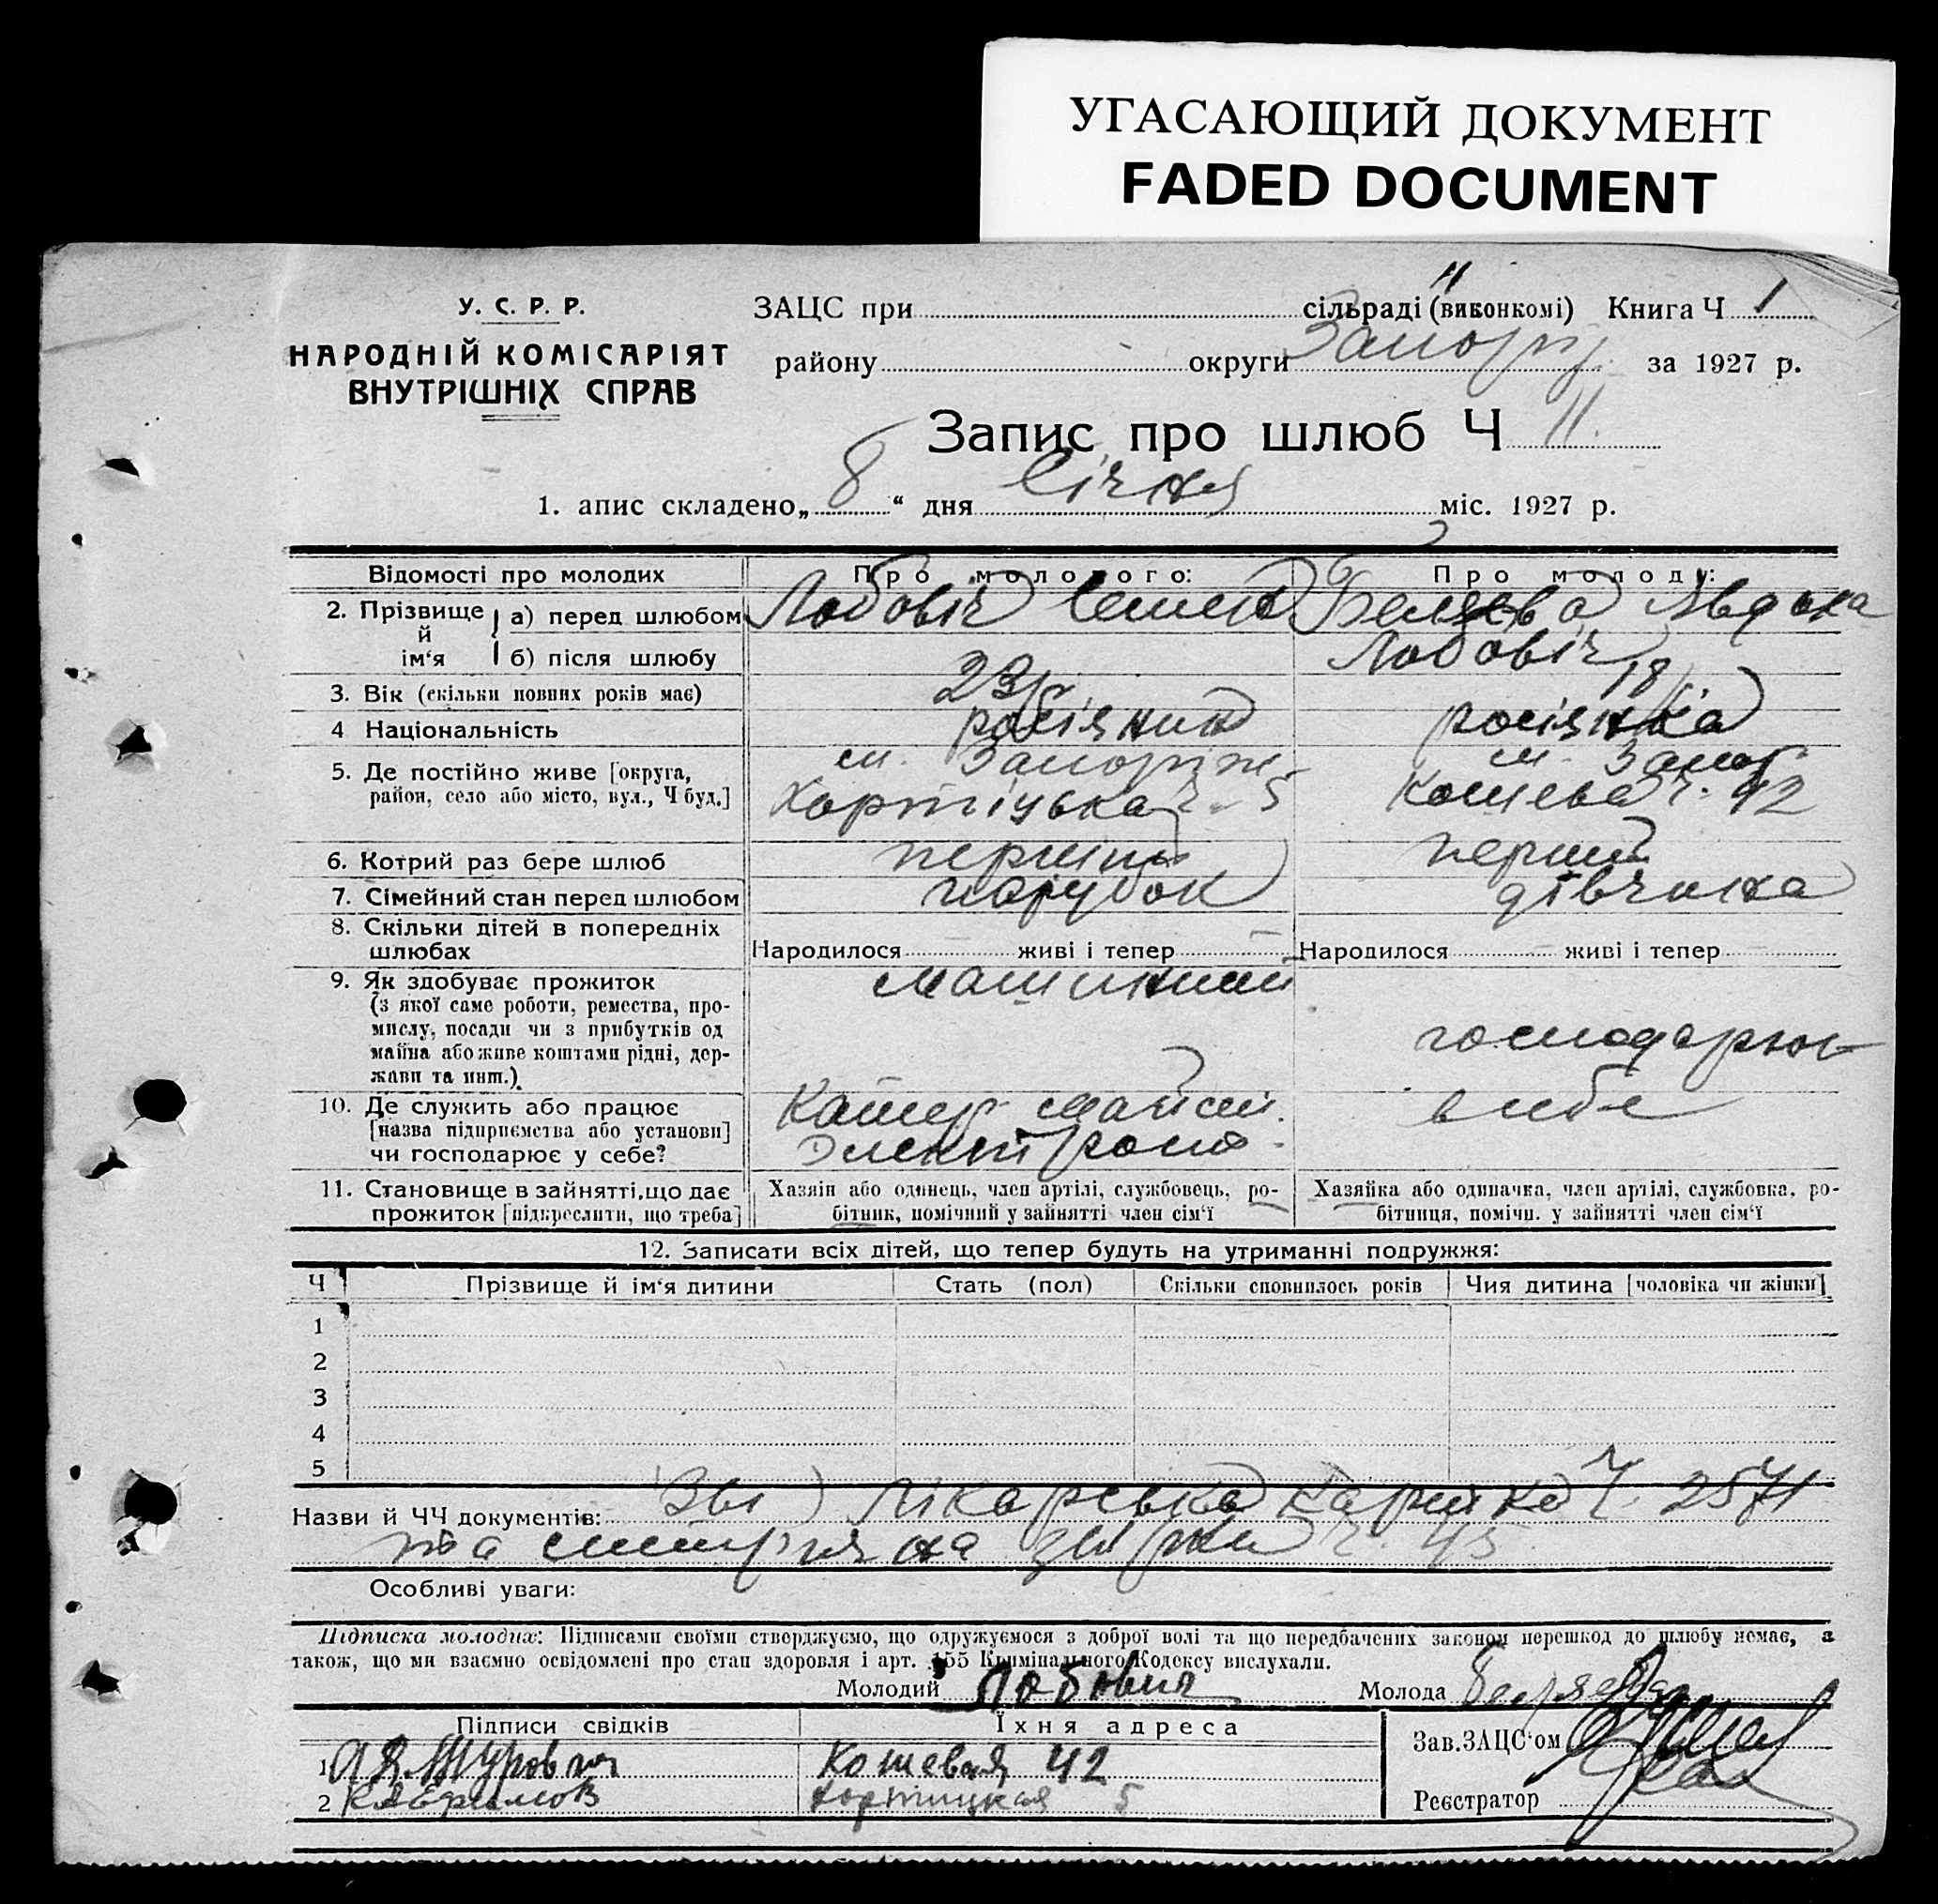 УГАСАЮЩИЙ ДОКУМЕНТ
FADED DOCUMENT
У. С. Р. Р.
НАРОДНІЙ КОМІСАРІЯТ
ВНУТРІШНІХ СПРАВ
ЗАЦС при сільраді (виконкомі) Книга Ч 1
району округи Запоріж. за 1927 р.
Запис про шлюб Ч 11.
1. апис складено „8“ дня Січня міс. 1927 р.
Відомості про молодих
Про молодого:
Про молоду:
2. Прізвище й ім‘я
а) перед шлюбом
Лобовіч Семен
Беляєва Явдока
б) після шлюбу
Лобовіч
3. Вік (скільки повних років має)
23р
18
4 Національність
росіянин
росіянка
5. Де постійно живе [округа,
район, село або місто, вул., Ч буд.]
м. Запоріж
Хортіцька ч. 5
м. Запор
Кошева ч. 42
6. Котрий раз бере шлюб
перший
перший
7. Сімейний стан перед шлюбом
парубок
дівчина
8. Скільки дітей в попередніх
шлюбах
Народилося живі і тепер
Народилося живі і тепер
9. Як здобуває прожиток
(з якої саме роботи, ремества, про-
мислу, посади чи з прибутків од
майна або живе коштами рідні, дер-
жави та инш.)
господарює
10. Де служить або працює
[назва підприємства або установи]
чи господарює у себе?
в себе
11. Становище в зайнятті, що дає
прожиток [підкреслити, що треба]
Хазяін або одинець, член артілі, службовець, ро-
бітник, помічний у зайнятті член сім‘ї
Хазяйка або одиначка, член артілі, службовка, ро-
бітниця, помічн. у зайнятті член сім‘ї
12. Записати всіх дітей, що тепер будуть на утриманні подружжя:
Ч Прізвище й ім‘я дитини Стать (пол) Скільки сповнилось років Чия дитина [чоловіка чи жінки]
1
2
3
4
5
Назви й ЧЧ документів: Лікарська картка Ч. 2571
та ч. 45
Особливі уваги:
Підписка молодих: Підписами своїми стверджуємо, що одружуємося з доброї волі та що передбачених законом перешкод до шлюбу немає, а
також, що ми взаємно освідомлені про стан здоровля і арт. 155 Кримінального Кодексу вислухали.
Молодий Лобович Молода Беляева
Підписи свідків Їхня адреса
Зав. ЗАЦС‘ом
1 Кошевая 42
2 Хортицкая 5
Реєстратор